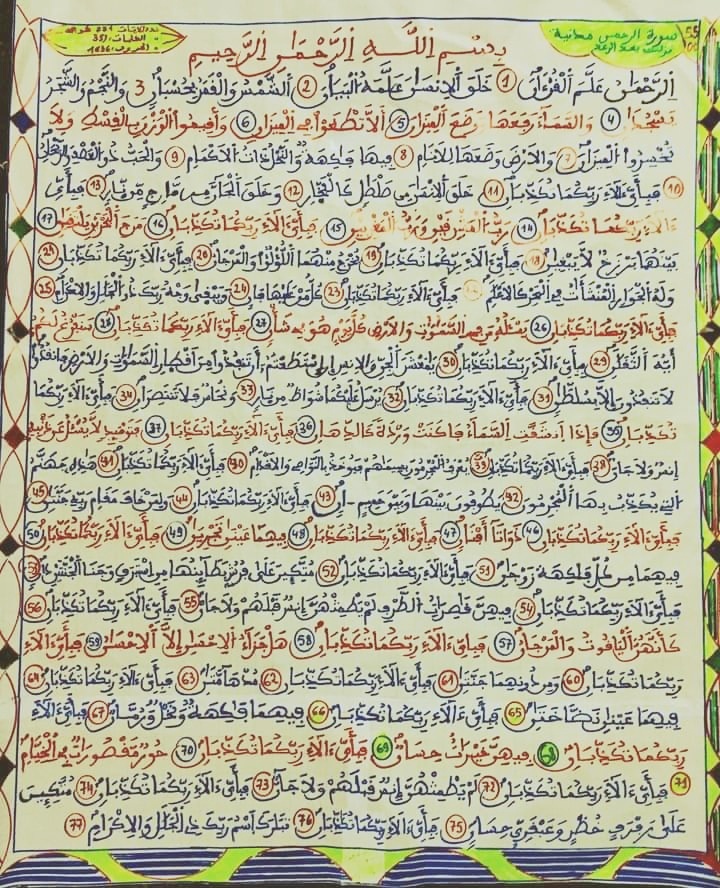 55
سورة الرحمن مدنية
نزلت بعد الرعد
الكلمات: 351
الحروف: 1636
بسم الله الرحمن الرحيم
الرحمن علم القرءان 1 خلق الانسن علمه البيان 2 الشمس والقمر بحسبان 3 والنجم والشجر
يسجدان 4 والسماء رفعها ووضع الميزان 5 ألا تطغوا في الميزان 6 وأقيموا الوزن بالقسط ولا
تخسروا الميزان 7 والارض وضعها للانام 8 فيها فكهة والنخل ذات الاكمام 9 والحب ذو العصف والريحان
10 فبأي ءالاء ربكما تكذبان 11 خلق الانسن من صلصل كالفخار 12 وخلق الجان من مارج من نار 13 فبأي
ءالاء ربكما تكذبان 14 رب المشرقين ورب المغربين 15 فبأي ءالاء ربكما تكذبان 16 مرج البحرين يلتقيان 17
بينهما برزخ لا يبغيان 18 فبأي ءالاء ربكما تكذبان 19 يخرج منهما اللؤلؤ والمرجان 20 فبأي ءالاء ربكما تكذبان 21
وله الجوار المنشئات في البحر كالاعلم فبأي ءالاء ربكما تكذبان 23 كل من عليها فان 24 ويبقى وجه ربك ذو الجلل والاكرام 25
فبأي ءالاء ربكما تكذبان 26 يسئله من في السموت والارض كل يوم هو في شأن 27 فبأي ءالاء ربكما تكذبان 28 سنفرغ لكم
أيه الثقلن 29 فبأي ءالاء ربكما تكذبان 30 يمعشر الجن والانس إن استطعتم أن تنفذوا من أقطار السموت والارض فانفذوا
لا تنفذون إلا بسلطن 31 فبأي ءالاء ربكما تكذبان 32 يرسل عليكما شواظ من نار 33 ونحاس فلا تنتصران 34 فبأي ءالاء ربكما
تكذبان 35 فإذا انشقت السماء فكانت وردة كالدهان 36 فبأي ءالاء ربكما تكذبان 37 فيومئذ لا يسئل عن ذنبه
إنس ولا جان 38 فبأي ءالاء ربكما تكذبان 39 يعرف المجرمون بسيمهم فيوخذ بالنوصي والاقدام 40 فبأي ءالاء ربكما تكذبان 41 هذه جهنم
التي يكذب بها المجرمون 42 يطوفون بينها وبين حميم ان 43 فبأي ءالاء ربكما تكذبان 44 ولمن خاف مقام ربه جنتن 45
فبأي ءالاء ربكما تكذبان 46 ذواتا أفنان 47 فبأي ءالاء ربكما تكذبان 48 فيهما عينن تجرين 49 فبأي ءالاء ربكما تكذبان 50
فيهما من كل فكهة زوجن 51 فبأي ءالاء ربكما تكذبان 52 متكين على فرش بطاينها من استبرق وجنا الجنتين دان 53
فبأي ءالاء ربكما تكذبان 54 فيهن قصرت الطرف لم يطمثهن إنس قبلهم ولا جان 55 فبأي ءالاء ربكما تكذبان 56
كأنهن الياقوت والمرجان 57 فبأي ءالاء ربكما تكذبان 58 هل جزاء الاحسن إلا الاحسن 59 فبأي ءالاء
ربكما تكذبان 60 ومن دونهما جنتن 61 فبأي ءالاء ربكما تكذبان 62 مدهامتن 63 فبأي ءالاء ربكما تكذبان 64
فيهما عينن نضاختن 65 فبأي ءالاء ربكما تكذبان 66 فيهما فكهة ونخل ورمان 67 فبأي ءالاء
ربكما تكذبان 68 فيهن خيرت حسان 69 فبأي ءالاء ربكما تكذبان 70 حور مقصورت في الخيام
71 فبأي ءالاء ربكما تكذبان 72 لم يطمثهن إنس قبلهم ولا جان 73 فبأي ءالاء ربكما تكذبان 74 متكين
على رفرف خضر وعبقري حسان 75 فبأي ءالاء ربكما تكذبان 76 تبرك اسم ربك ذي الجلل والاكرام 77